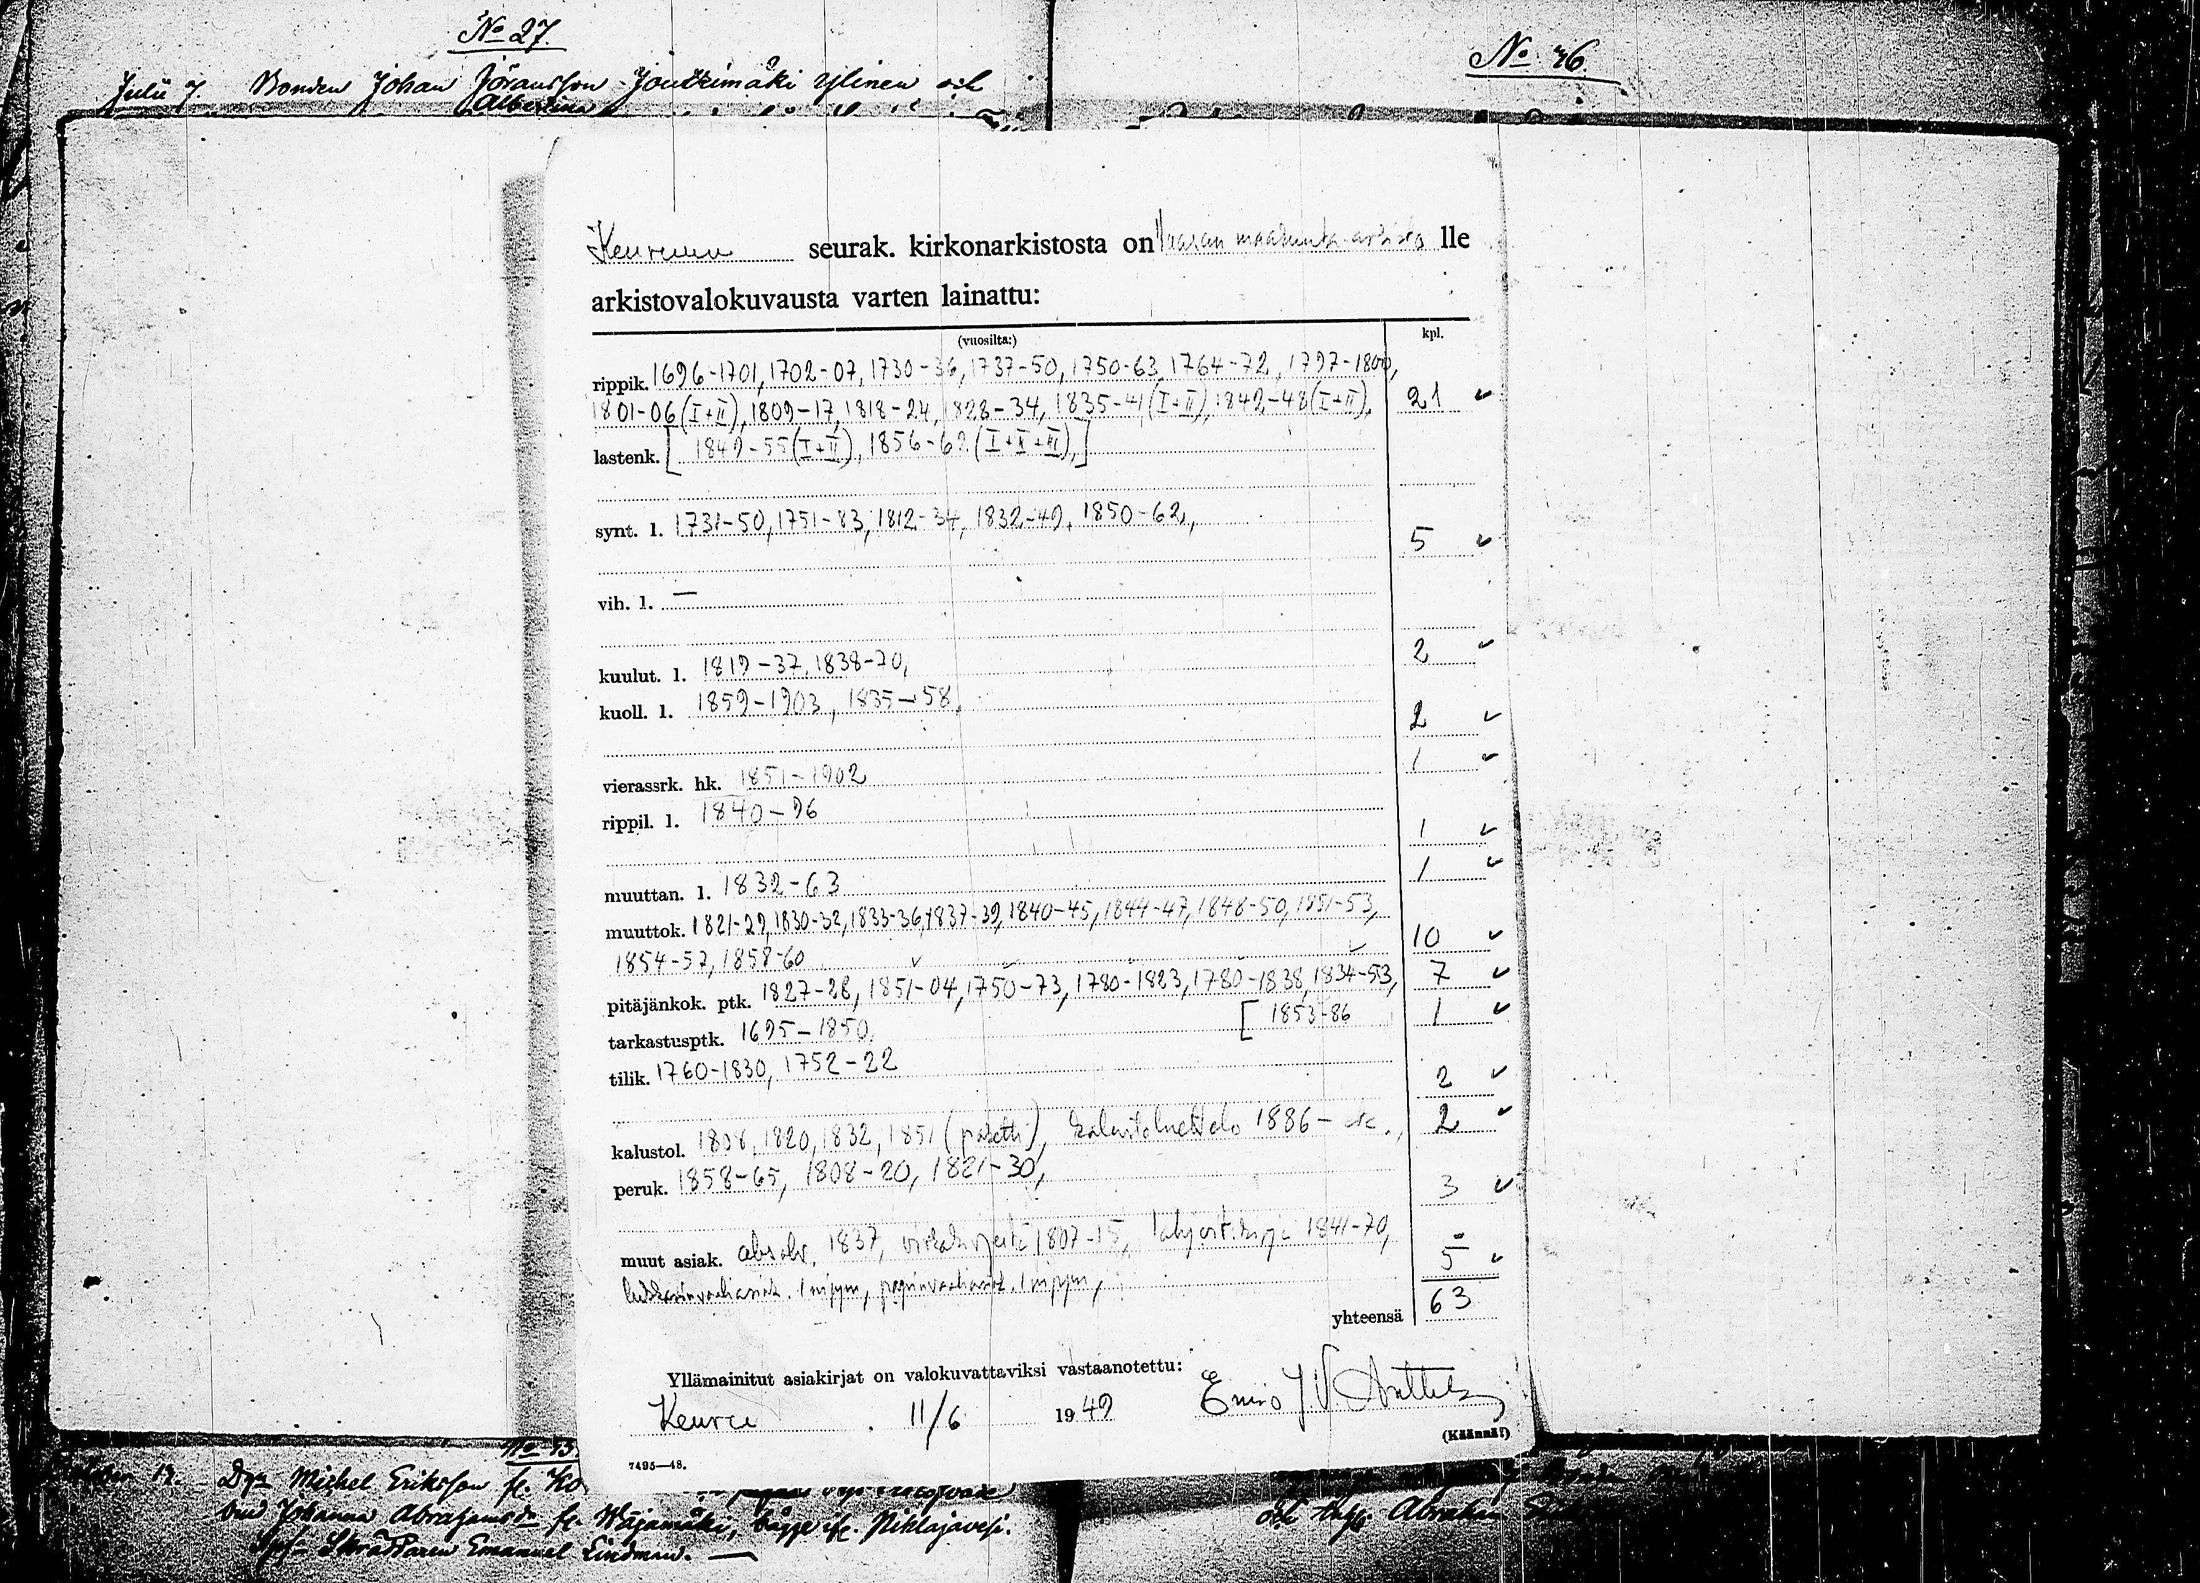 No 27.
No 76.
Julii 7. Bonden Johan Jöransson Joutkimäki Ylinen och
Albertina
Keuruun seurak. kirkonarkistosta on Vaasan maakunta-arkisto lle
arkistovalokuvausta varten lainattu:
(vuosilta:) kpl.
rippik. 1696-1701, 1702-07, 1730-36, 1737-50, 1750-63, 1764-72, 1797-1800,
1801-06 (I+II), 1809-17, 1818-24, 1828-34, 1835-41 (I+II), 1842-48 (I+II), 21 ✓
lastenk. [ 1849-55 (I+II), 1856-62 (I+II+III),]
synt. l. 1731-50, 1751-83, 1812-34, 1832-49, 1850-62, 5 ✓
vih. l. —
kuulut. l. 1819-37, 1838-70, 2 ✓
kuoll. l. 1859-1903, 1835-58, 2 ✓
vierassrk. hk. 1851-1902 1 ✓
rippil. l. 1840-96 1 ✓
muuttan. l. 1832-63 1 ✓
muuttok. 1821-29, 1830-32, 1833-36, 1837-39, 1840-45, 1844-47, 1848-50, 1851-53,
1854-57, 1858-60 10 ✓
pitäjänkok. ptk. 1827-28, 1851-04, 1750-73, 1780-1823, 1780-1838, 1834-53, 7 ✓
[ 1853-86
tarkastusptk. 1695-1850. 1 ✓
tilik. 1760-1830, 1752-22 2 ✓
kalustol. 1808, 1820, 1832, 1851 (paketti), kalustoluettelo 1886- 2 ✓
peruk. 1858-65, 1808-20, 1821-30, 3 ✓
muut asiak. absolv. 1837, virkakirjeitä 1807-15, lahjoit.kirja 1841-70, 5 ✓
1 nippu, 1 nippu,
yhteensä 63
Yllämainitut asiakirjat on valokuvattaviksi vastaanotettu:
Keuruu . 11/6 1949 Eniö J. V. Anttila
(Käännä!)
7495—48.
No 53
October 19. Dgn Michel Eriksson fr.
och Johanna Abrahamsdr fr. Wäjamäki, bägge ifr. Pihlajavesi.
Skräddaren Emanuel Lindman. —
och Abraham